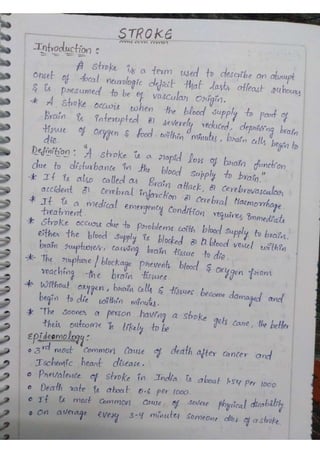 STROKE
Introduction :
A stroke is a term used to describe an abrupt
onset of focal neurologic deficit that lasts atleast 24hours
& is presumed to be of vascular origin.
* A stroke occurs when the blood supply to part of
Brain is interupted & severely reduced, depriving brain
tissue of oxygen & food within minutes, brain cells begin to
die.
Definition : "A stroke is a rapid loss of brain function
due to disturbance in the blood supply to brain."
* It is also called as Brain attack, & cerebrovascular
accident & cerebral infarction & cerebral Haemorrhage
* It is a medical emergency condition requires immediate
treatment.
* Stroke occurs due to problems with blood supply to brain.
either the blood supply is blocked & blood vessel within
brain ruptures, causing brain tissue to die.
* The rupture / blockage prevents blood & oxygen from
reaching the brain tissues
* Without oxygen, brain cells & tissues become damaged and
begin to die within minutes.
* The sooner a person having a stroke gets care, the better
their outcome is likely to be
Epidemology :
o 3rd most common cause of death after cancer and
Ischemic heart disease.
o Prevalence of stroke in India is about 1.54 per 1000
o Death rate is about 0.6 per 1000.
o It is most common cause of severe physical disability
o On average every 3-4 minutes someone dies of a stroke.